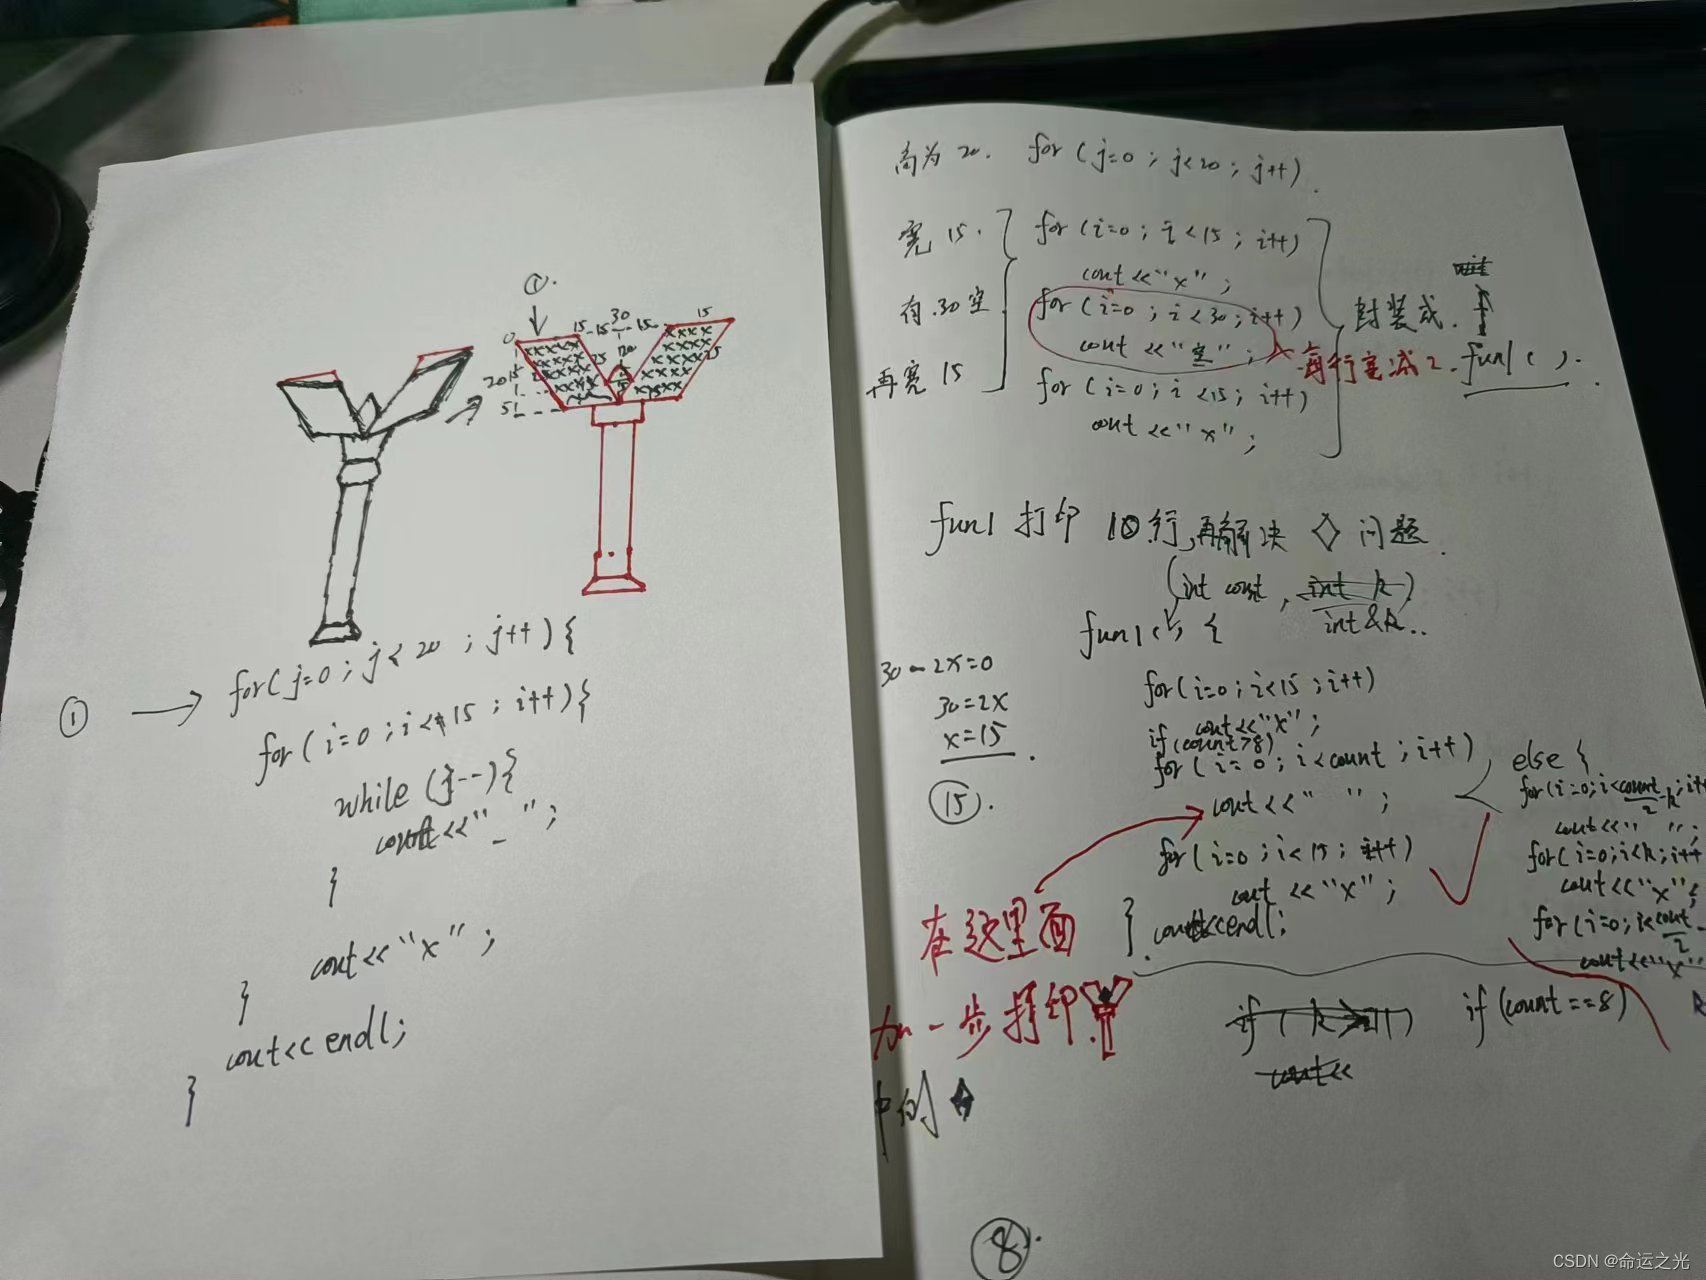 ①.
0 15 15 30 15 15
20 15
15
5
15
① → for(j=0; j<20; j++){
for(i=0; i<15; i++){
while(j--){
cout<<"_";
}
cout<<"x";
}
cout<<endl;
}
高为20. for(j=0; j<20; j++).
宽15. for(i=0; i<15; i++)
cout<<"x";
有30空 for(i=0; i<30; i++)
cout<<"空";
再宽15 for(i=0; i<15; i++)
cout<<"x";
封装成.
每行空减2. fun1().
fun1打印10行,再解决◇问题.
(int cont, int k)
int&k..
fun1(), {
30-2x=0
30=2x
x=15.
⑮.
for(i=0; i<15; i++)
cout<<"x";
if(count>8)
for(i=0; i<count; i++)
cout<<" ";
for(i=0; i<15; i++)
cout<<"x";
} cout<<endl;
else{
for(i=0; i<count/2-k; i++
cout<<" ";
for(i=0; i<k; i++
cout<<"x";
for(i=0; i<count/2-
cout<<"x"
在这里面
加一步打印
中的◆
if(count==8)
cout<<
⑧.
CSDN @命运之光